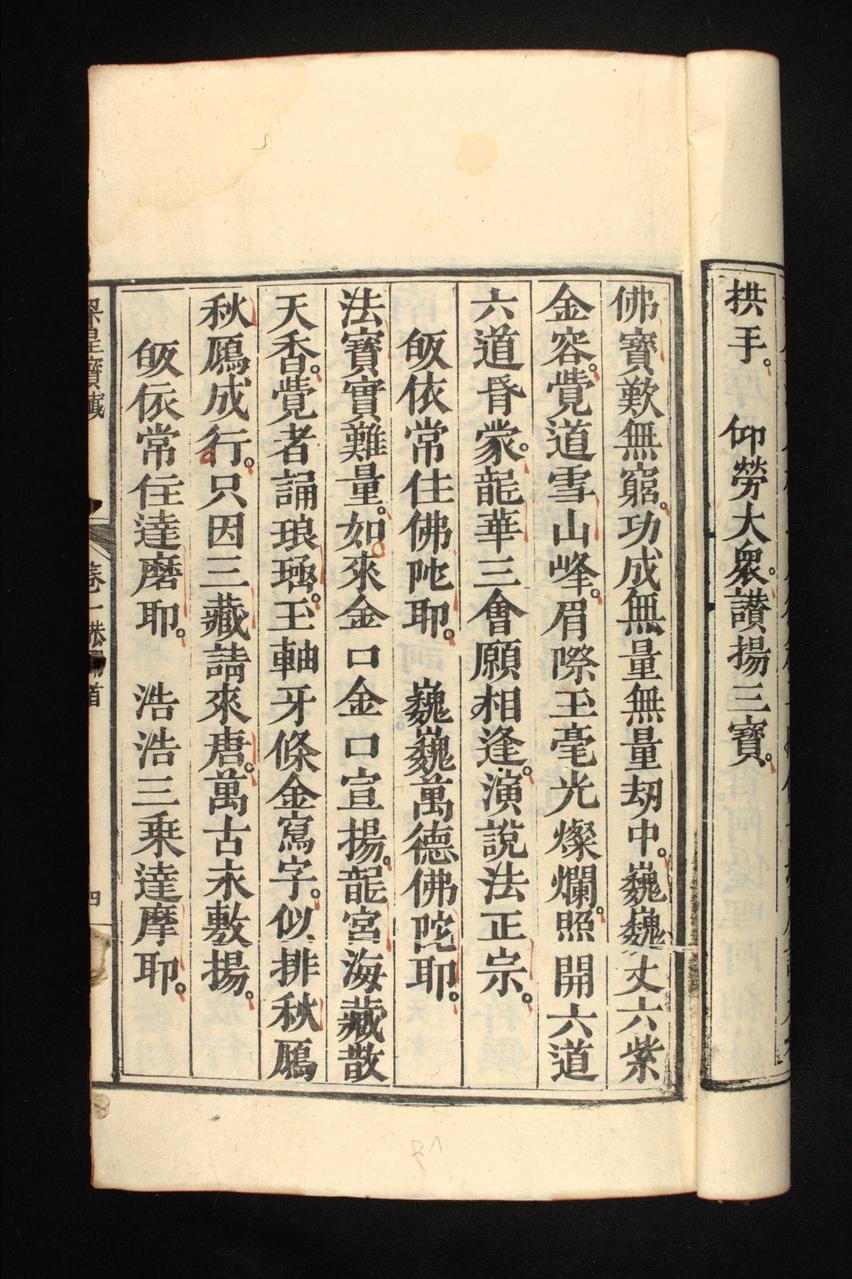 拱手。 仰勞大眾。讚揚三寶。
佛寶歎無窮。功成無量無量劫中。巍巍丈六紫
金容。覺道雪山峰。眉際玉毫光燦爛。照開六道
六道昏蒙。龍華三會願相逢。演說法正宗。
皈依常住佛陀耶。 巍巍萬德佛陀耶。
法寶實難量。如來金口金口宣揚。龍宮海藏散
天香。覺者誦琅璚。玉軸牙條金寫字。似排秋鴈
秋鴈成行。只因三藏請來唐。萬古永敷揚。
皈依常住達磨耶。 浩浩三乘達摩耶。
梁皇寶懺 卷一 四